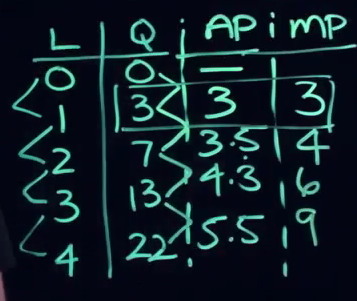 L Q AP MP
0 0 —
1 3 3 3
2 7 3.5 4
3 13 4.3 6
4 22 5.5 9